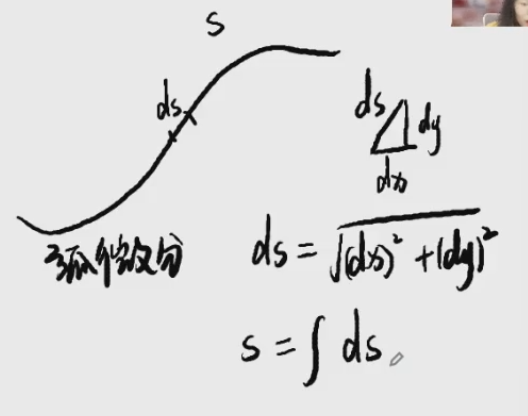 s
ds
ds
dy
dx
弧微分
ds = √(dx)² + (dy)²
s = ∫ ds